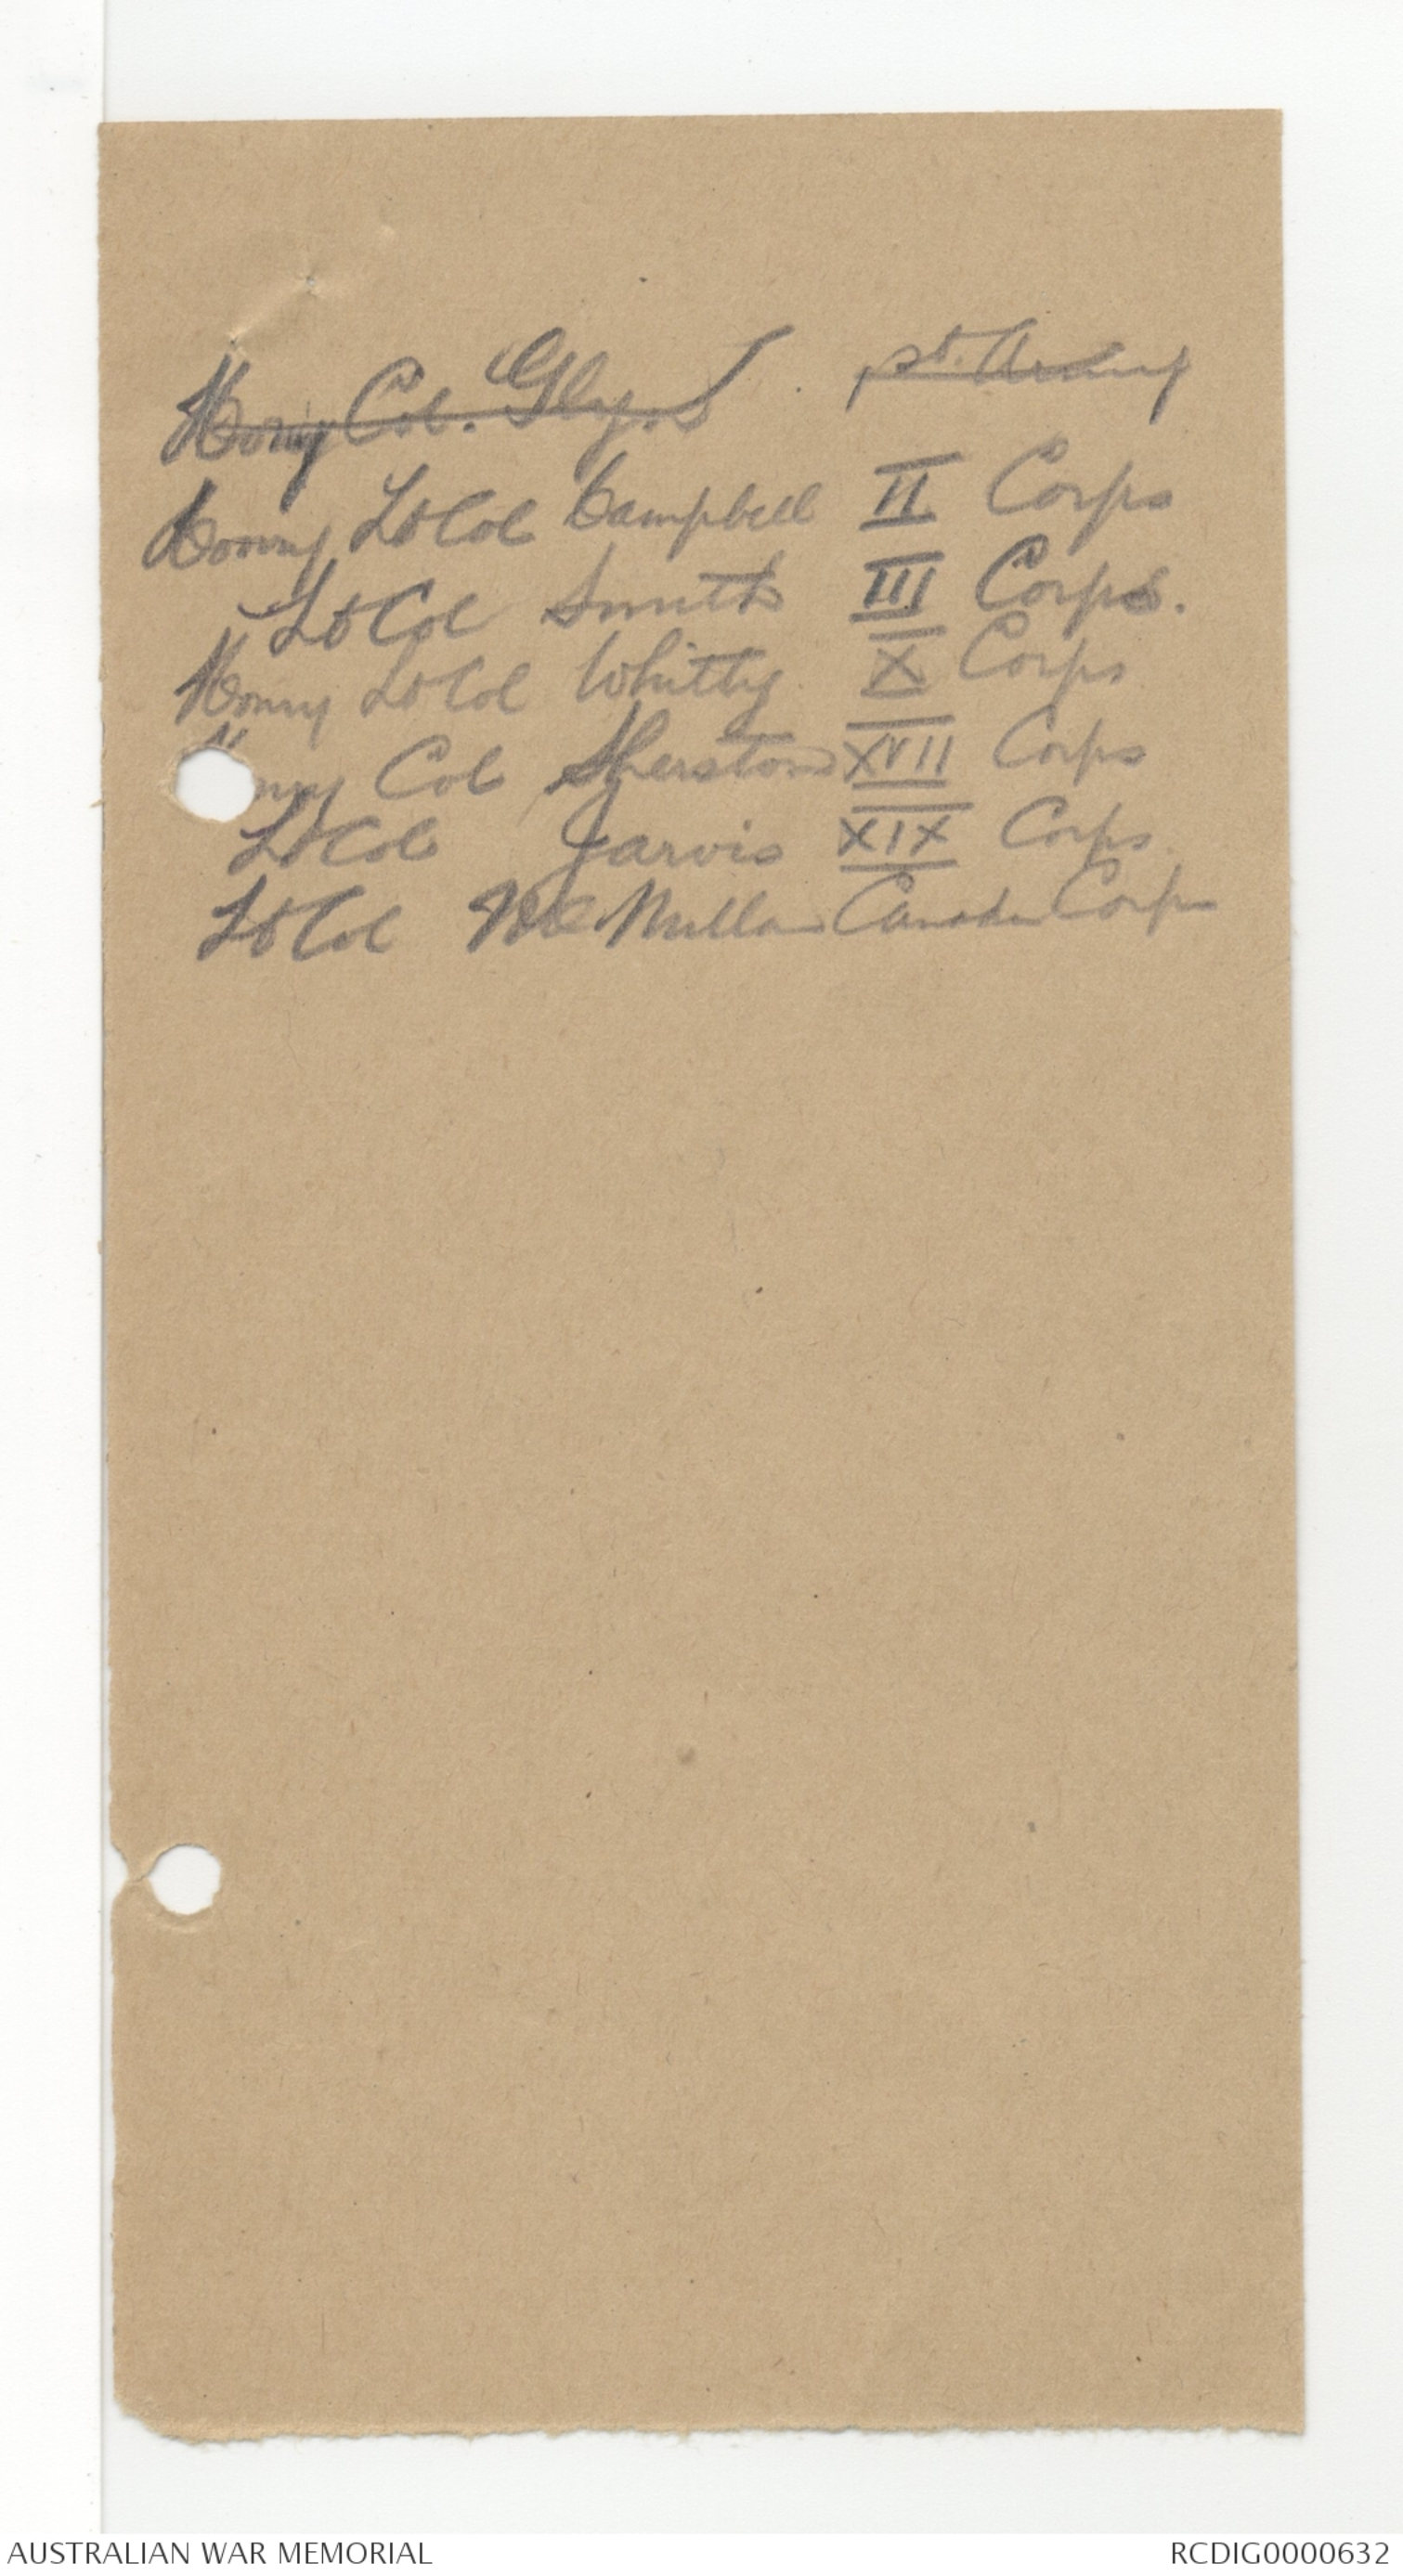 Hony Col. Glyn 1st. Army
Hony Lt Col Campbell II Corps
Lt Col Smith III Corps.
Hony Lt Col Whitty X Corps
ny Col Sherston XVII Corps
Lt Col Jarvis XIX Corps
Lt Col McMillan Canadn Corps
AUSTRALIAN WAR MEMORIAL RCDIG0000632